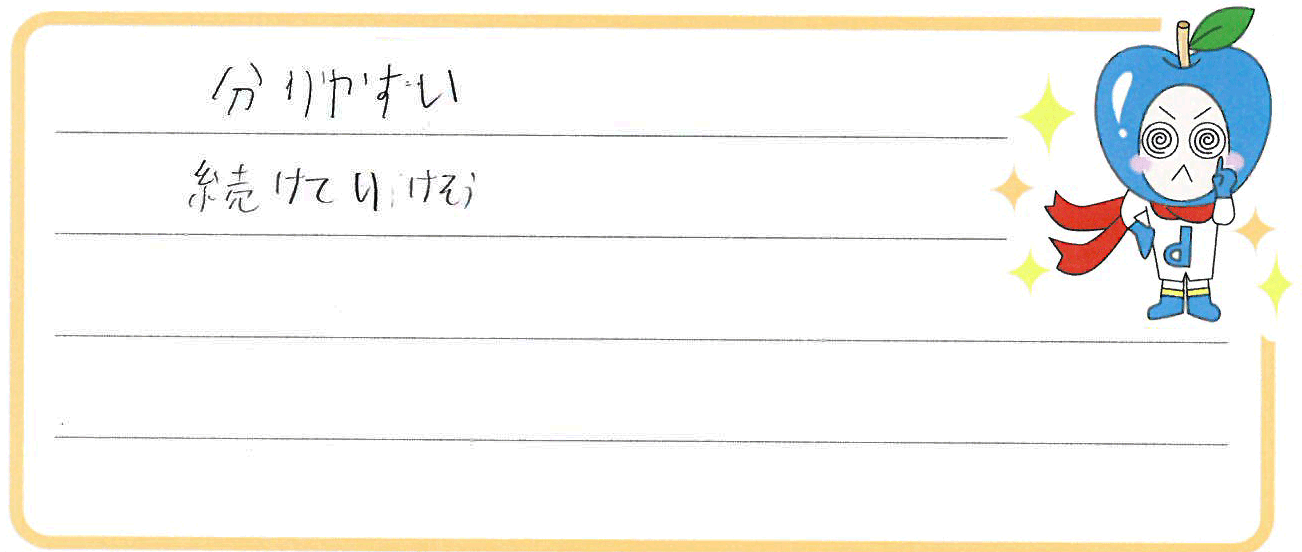 分りやすい
続けていけそう
d